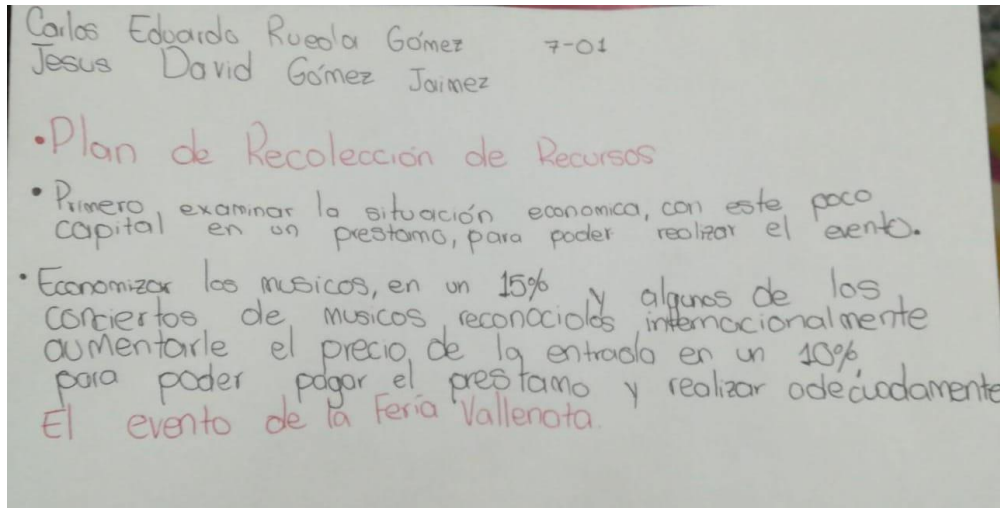 Carlos Eduardo Rueda Gómez 7-01
Jesus David Gómez Jaimez
•Plan de Recolección de Recursos
• Primero, examinar la situación economica, con este poco
capital en un prestamo, para poder realizar el evento.
• Economizar los musicos, en un 15% y algunos de los
conciertos de musicos reconocidos internacionalmente
aumentarle el precio de la entrada en un 10%
para poder pagar el prestamo y realizar adecuadamente
El evento de la Feria Vallenata.